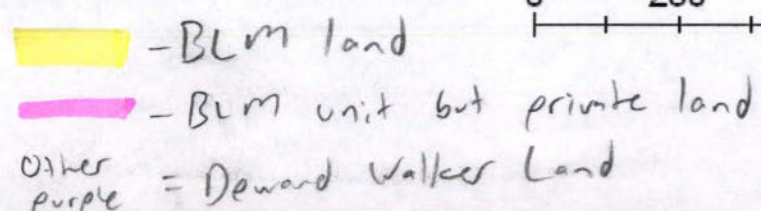 0 200
- BLM land
- BLM unit but private land
Other purple = Deward Walker Land